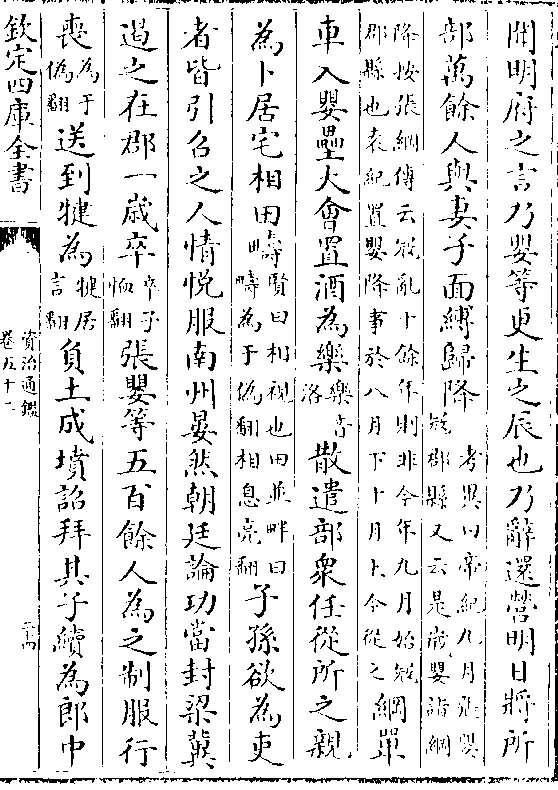 聞明府之言乃嬰等更生之辰也乃辭還營明日將所
部萬餘人與妻子面縛歸降考異曰帝紀九月張嬰冦郡縣又云是嵗嬰詣綱
降按張綱傳云冦亂十餘年則非今年九月始冦郡縣也袁紀置嬰降事於八月下十月上今從之綱單
車入嬰壘大會置酒為樂樂音洛散遣部衆任從所之親
為卜居宅相田疇賢曰相視也田並畔曰疇為于偽翻相息亮翻子孫欲為吏
者皆引召之人情悦服南州晏然朝廷論功當封梁冀
遏之在郡一歳卒卒子恤翻張嬰等五百餘人為之制服行
喪為于偽翻送到犍為犍居言翻負土成墳詔拜其子續為郎中
欽定四庫全書
資治通鑑
卷五十二
二十四